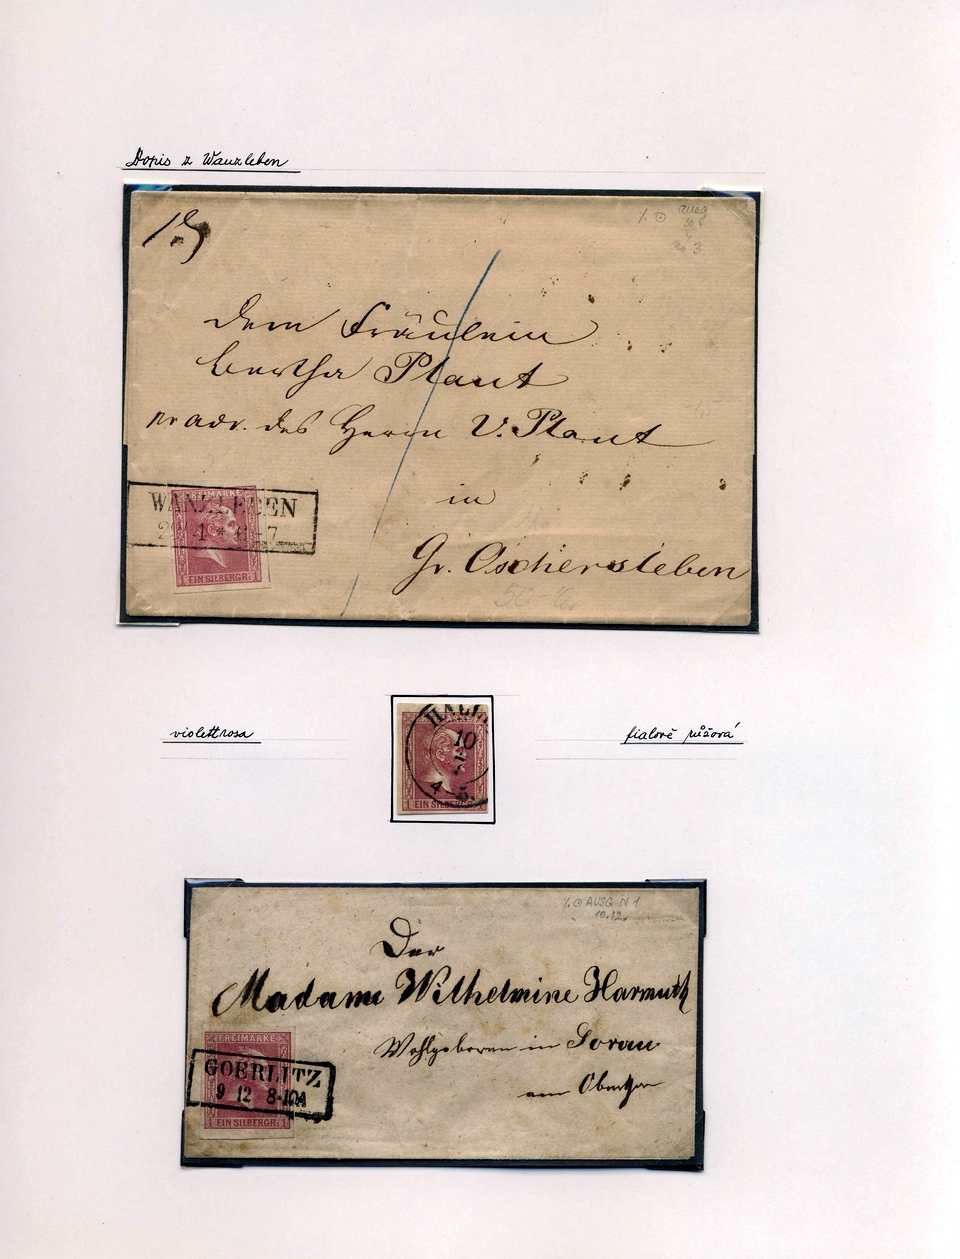 Dopis z Wanzleben
ausg
No 3
Dem Fräulein
Bertha Plaut
pr adr. des Herrn V. Plaut
in
Gr. Oschersleben
WANZLEBEN
1 * 6-7
FREIMARKE
1 EIN SILBERGR. 1
violettrosa
10
4 5.
1 EIN SILBERGR. 1
fialově růžová
AUSG N 1
10.12.
Der
Madame Wilhelmine Harmuth
Wohlgeboren in Sorau
FREIMARKE
GOERLITZ
9 12 8-10A
1 EIN SILBERGR. 1